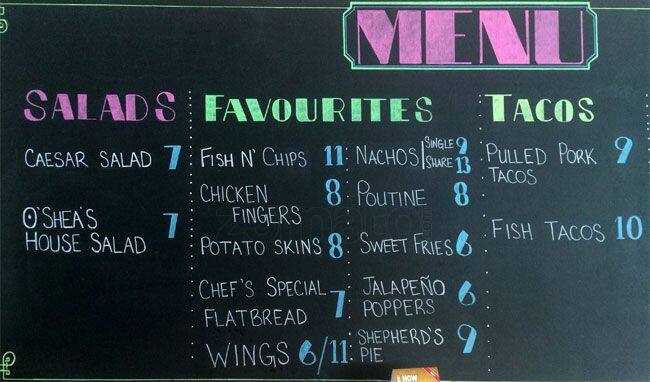 MENU
SALADS
CAESAR SALAD 7
O'SHEA'S
HOUSE SALAD 7
FAVOURITES
FISH N' CHIPS 11
CHICKEN
FINGERS 8
POTATO SKINS 8
CHEF'S SPECIAL
FLATBREAD 7
WINGS 6/11
NACHOS SINGLE 9
SHARE 13
POUTINE 8
SWEET FRIES 6
JALAPEÑO
POPPERS 6
SHEPHERD'S
PIE 9
TACOS
PULLED PORK 9
TACOS
FISH TACOS 10